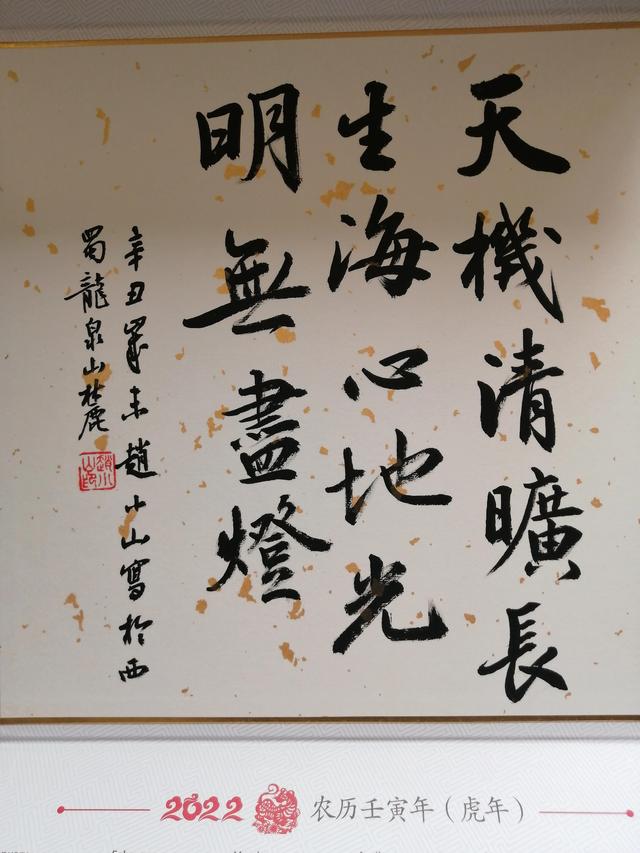 天機清曠長
生海心地光
明無盡燈
辛丑歲末趙小山寫於西
蜀龍泉山麓
2022 农历壬寅年(虎年)